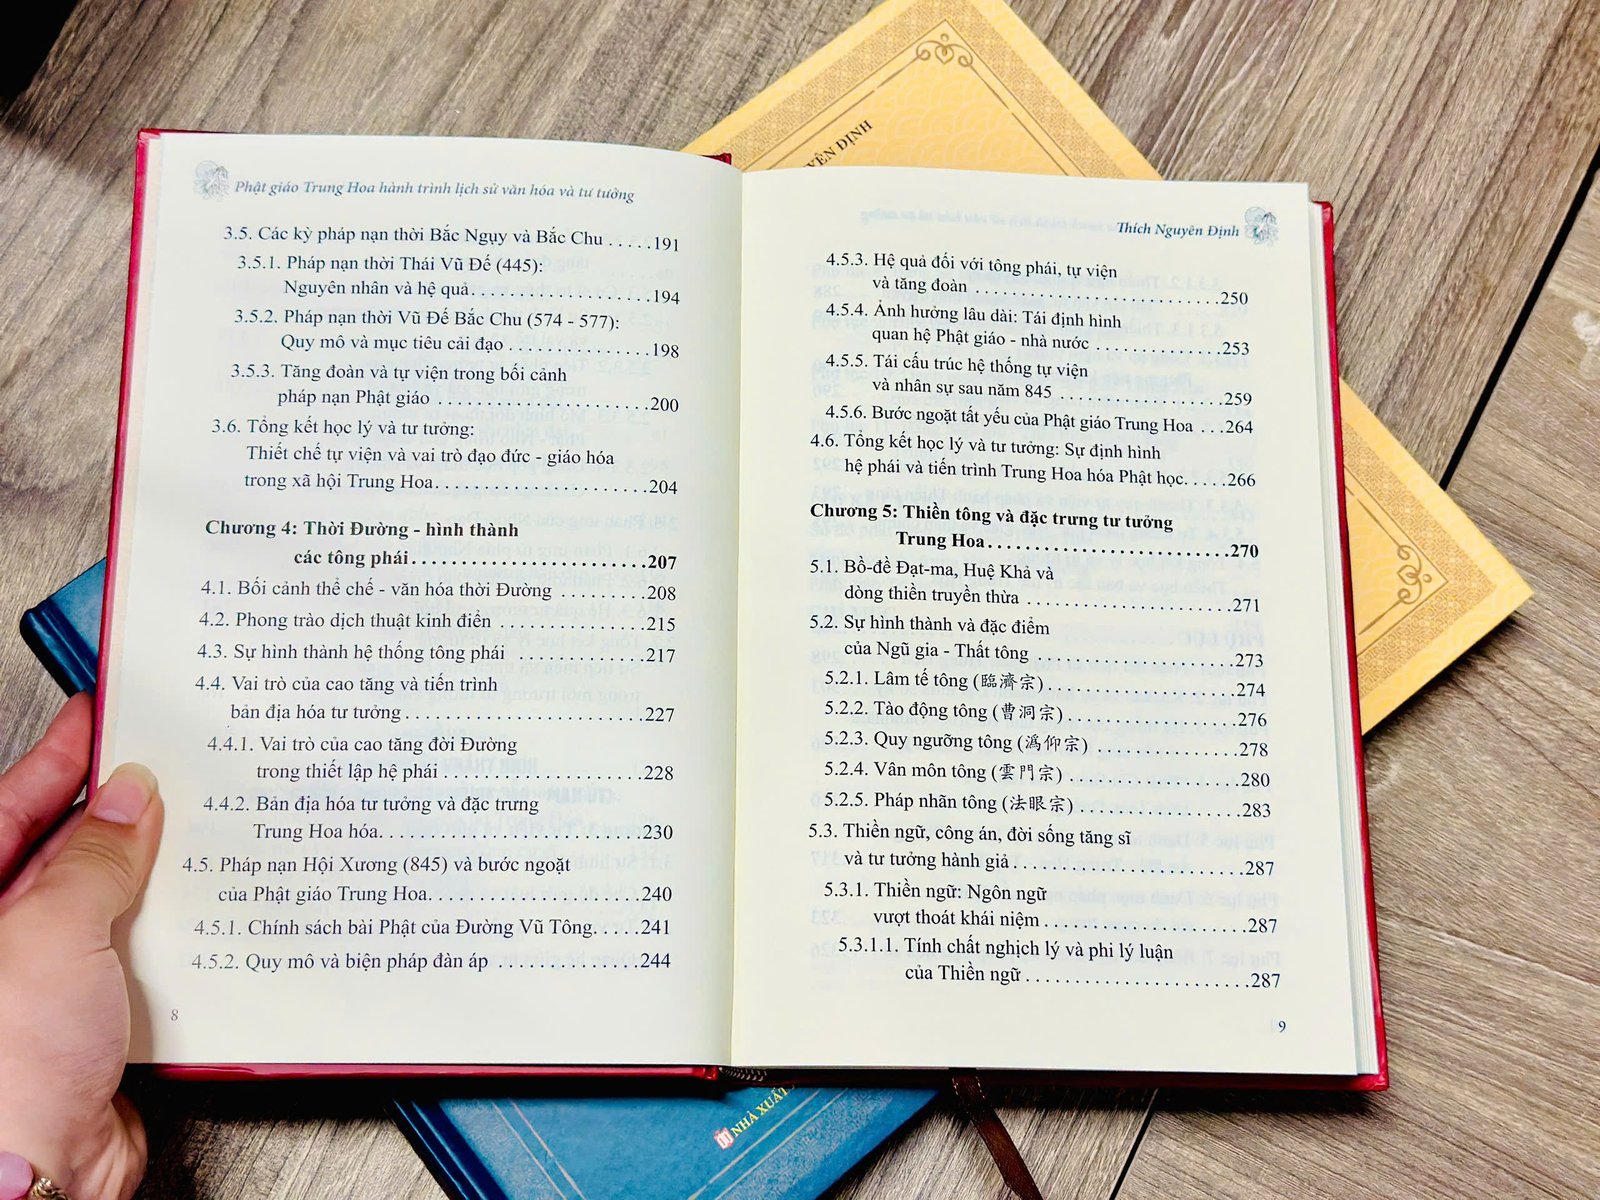 Phật giáo Trung Hoa hành trình lịch sử văn hóa và tư tưởng
3.5. Các kỳ pháp nạn thời Bắc Ngụy và Bắc Chu .....191
3.5.1. Pháp nạn thời Thái Vũ Đế (445):
Nguyên nhân và hệ quả..................194
3.5.2. Pháp nạn thời Vũ Đế Bắc Chu (574 - 577):
Quy mô và mục tiêu cải đạo ..............198
3.5.3. Tăng đoàn và tự viện trong bối cảnh
pháp nạn Phật giáo .....................200
3.6. Tổng kết học lý và tư tưởng:
Thiết chế tự viện và vai trò đạo đức - giáo hóa
trong xã hội Trung Hoa.....................204
Chương 4: Thời Đường - hình thành
các tông phái.......................207
4.1. Bối cảnh thể chế - văn hóa thời Đường .........208
4.2. Phong trào dịch thuật kinh điển ...............215
4.3. Sự hình thành hệ thống tông phái ..............217
4.4. Vai trò của cao tăng và tiến trình
bản địa hóa tư tưởng.......................227
4.4.1. Vai trò của cao tăng đời Đường
trong thiết lập hệ phái ....................228
4.4.2. Bản địa hóa tư tưởng và đặc trưng
Trung Hoa hóa..........................230
4.5. Pháp nạn Hội Xương (845) và bước ngoặt
của Phật giáo Trung Hoa.....................240
4.5.1. Chính sách bài Phật của Đường Vũ Tông.....241
4.5.2. Quy mô và biện pháp đàn áp ..............244
8
Thích Nguyên Định
4.5.3. Hệ quả đối với tông phái, tự viện
và tăng đoàn .........................250
4.5.4. Ảnh hưởng lâu dài: Tái định hình
quan hệ Phật giáo - nhà nước .............253
4.5.5. Tái cấu trúc hệ thống tự viện
và nhân sự sau năm 845 .................259
4.5.6. Bước ngoặt tất yếu của Phật giáo Trung Hoa ...264
4.6. Tổng kết học lý và tư tưởng: Sự định hình
hệ phái và tiến trình Trung Hoa hóa Phật học.....266
Chương 5: Thiền tông và đặc trưng tư tưởng
Trung Hoa.........................270
5.1. Bồ-đề Đạt-ma, Huệ Khả và
dòng thiền truyền thừa ....................271
5.2. Sự hình thành và đặc điểm
của Ngũ gia - Thất tông ....................273
5.2.1. Lâm tế tông (臨濟宗)...................274
5.2.2. Tào động tông (曹洞宗).................276
5.2.3. Quy ngưỡng tông (潙仰宗) ..............278
5.2.4. Vân môn tông (雲門宗) .................280
5.2.5. Pháp nhãn tông (法眼宗)................283
5.3. Thiền ngữ, công án, đời sống tăng sĩ
và tư tưởng hành giả .......................287
5.3.1. Thiền ngữ: Ngôn ngữ
vượt thoát khái niệm....................287
5.3.1.1. Tính chất nghịch lý và phi lý luận
của Thiền ngữ ......................287
9
ĐỊNH
NHÀ XUẤT